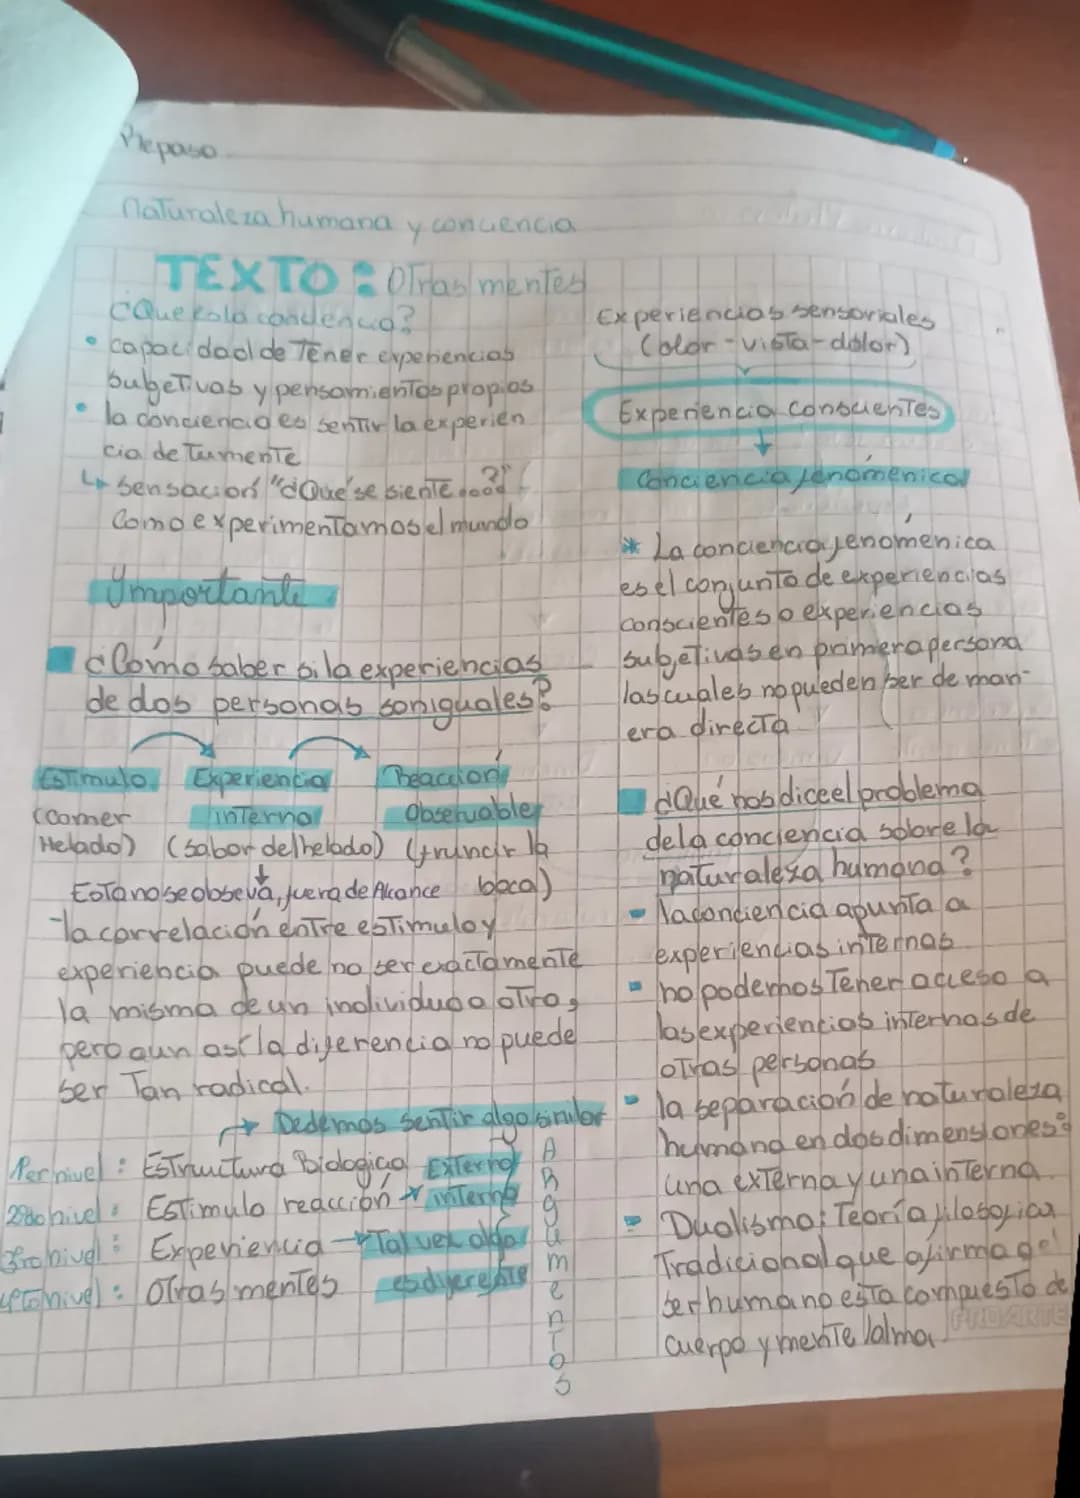 Repaso
Naturaleza humana y conciencia
TEXTO: Otras mentes
¿Que es la conciencia?
• capacidad de Tener experiencias
subjeTivas y pensamientos propios
• la conciencia es sentir la experien
cia de Tu mente
↳ sensación "¿Qué se siente...?"
Como experimentamos el mundo
Importante
¿Cómo saber si la experiencias
de dos personas son iguales?
Estimulo Experiencia Reacción
interna Observable
(comer Helado) (sabor del helado) (fruncir la boca)
Esto no se observa, fuera de Alcance
- la correlación entre estimulo y
experiencia puede no ser exactamente
la misma de un individuo a otro,
pero aun así la diferencia no puede
ser Tan radical.
→ Debemos sentir algo similar
Per nivel: Estructura Biologica Externo
2do nivel: Estimulo reacción → interno
3ro nivel: Experiencia → Tal vez algo
4to nivel: Otras mentes es diferente
Argumentos
Experiencias sensoriales
(olor - vista - dolor)
Experiencia conscientes
↓
Conciencia fenoménica
* La conciencia fenoménica
es el conjunto de experiencias
conscientes o experiencias
subjetivas en primera persona
las cuales no pueden ser de man-
era directa
¿Qué nos dice el problema
de la conciencia sobre la
naturaleza humana?
- la conciencia apunta a
experiencias internas
- no podemos Tener acceso a
las experiencias internas de
oTras personas
- la separación de naturaleza
humana en dos dimensiones:
una externa y una interna.
- Dualismo: Teoría filosofica
Tradicional que afirma qe'
ser humano esta compuesto de
cuerpo y mente/alma.
PROARTE